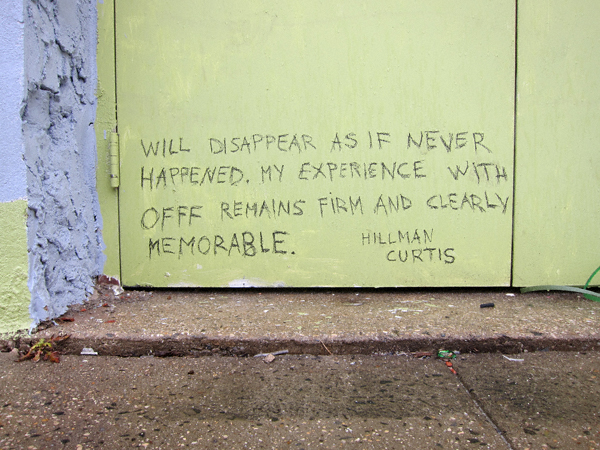 WILL DISAPPEAR AS IF NEVER
HAPPENED. MY EXPERIENCE WITH
OFFF REMAINS FIRM AND CLEARLY
MEMORABLE.
HILLMAN
CURTIS